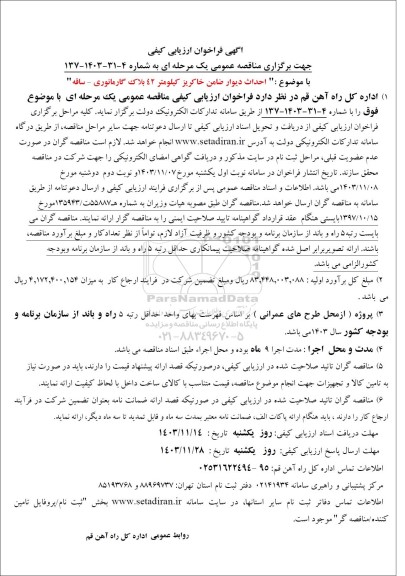 آگهی فراخوان ارزیابی کیفی
جهت برگزاری مناقصه عمومی یک مرحله ای به شماره ۴-۳۱-۱۴۰۳-۱۳۷
با موضوع : " احداث دیوار ضامن خاکریز کیلومتر ۴۲ بلاک گارمانوری – ساقه"
۱) اداره کل راه آهن قم در نظر دارد فراخوان ارزیابی کیفی مناقصه عمومی یک مرحله ای با موضوع
فوق را با شماره ۴-۳۱-۱۴۰۳-۱۳۷ از طریق سامانه تدارکات الکترونیک دولت برگزار نماید. کلیه مراحل برگزاری
فراخوان ارزیابی کیفی از دریافت و تحویل اسناد ارزیابی کیفی تا ارسال دعوتنامه جهت سایر مراحل مناقصه، از طریق درگاه
سامانه تدارکات الکترونیکی دولت به آدرس www.setadiran.ir انجام خواهد شد. لازم است مناقصه گران در صورت
عدم عضویت قبلی، مراحل ثبت نام در سایت مذکور و دریافت گواهی امضای الکترونیکی را جهت شرکت در مناقصه
محقق سازند. تاریخ انتشار فراخوان در سامانه نوبت اول یکشنبه مورخ ۱۴۰۳/۱۱/۰۷ و نوبت دوم دوشنبه مورخ
۱۴۰۳/۱۱/۰۸ می باشد. اطلاعات و اسناد مناقصه عمومی پس از برگزاری فرایند ارزیابی کیفی و ارسال دعوتنامه از طریق
سامانه به مناقصه گران ارسال خواهد شد. مناقصه گران طبق مصوبه هیات وزیران به شماره ۵۵۸۸۷ت/۱۳۹۵۴۳ مورخ
۱۳۹۷/۱۰/۱۵ بایستی هنگام عقد قرارداد گواهینامه تایید صلاحیت ایمنی را به مناقصه گزار ارائه نمایند. مناقصه گران می
بایست رتبه ۵ راه و باند از سازمان برنامه و بودجه کشور و ظرفیت آزاد لازم، توأماً از نظر تعداد کار و مبلغ برآورد مناقصه،
باشند. ارائه تصویر برابر اصل شده گواهینامه صلاحیت پیمانکاری حداقل رتبه ۵ راه و باند از سازمان برنامه وبودجه
کشور الزامی می باشد.
۲) مبلغ کل برآورد اولیه : ۸۳,۴۴۸,۰۰۳,۰۸۸ ریال ومبلغ تضمین شرکت در فرآیند ارجاع کار به میزان ۴,۱۷۲,۴۰۰,۱۵۴ ریال می
باشد .
۳) پروژه ( ازمحل طرح های عمرانی ) بر اساس فهرست بهای واحد حداقل رتبه ۵ راه و باند از سازمان برنامه و
بودجه کشور سال ۱۴۰۳ می باشد.
۴) مدت و محل اجرا : مدت اجرا ۹ ماه بوده و محل اجرا، طبق اسناد مناقصه می باشد.
۵) مناقصه گران تائید صلاحیت شده در ارزیابی کیفی، درصورتیکه قصد ارائه پیشنهاد قیمت را دارند، باید در صورت نیاز
به تامین کالا و تجهیزات جهت انجام موضوع مناقصه، قیمت متناسب با کالای ساخت داخل با لحاظ کیفیت ارائه نمایند.
۶) مناقصه گران تائید صلاحیت شده در ارزیابی کیفی در صورتیکه قصد ارائه ضمانت نامه بعنوان تضمین شرکت در فرآیند
ارجاع کار را دارند ، باید هنگام ارائه پاکات الف، ضمانت نامه معتبر بمدت سه ماه و قابل تمدید تا سه ماه دیگر، ارائه نماید.
مهلت دریافت اسناد ارزیابی کیفی: روز یکشنبه تاریخ : ۱۴۰۳/۱۱/۱۴
مهلت ارسال پاسخ ارزیابی کیفی: روز یکشنبه تاریخ : ۱۴۰۳/۱۱/۲۸
اطلاعات تماس اداره کل راه آهن قم: ۹۵ - ۰۲۵۳۱۶۲۲۴۹۴
مرکز پشتیبانی و راهبری سامانه ۰۲۱۴۱۹۳۴ دفتر ثبت نام استان تهران: ۸۸۹۶۹۷۳۷ و ۸۵۱۹۳۷۶۸
اطلاعات تماس دفاتر ثبت نام سایر استانها، در سایت سامانه www.setadiran.ir بخش "ثبت نام/پروفایل تامین
کننده/مناقصه گر" موجود است.
روابط عمومی اداره کل راه آهن قم
ParsNamadData
۰۲۱-۸۸۳۴۹۶۷۰-۵